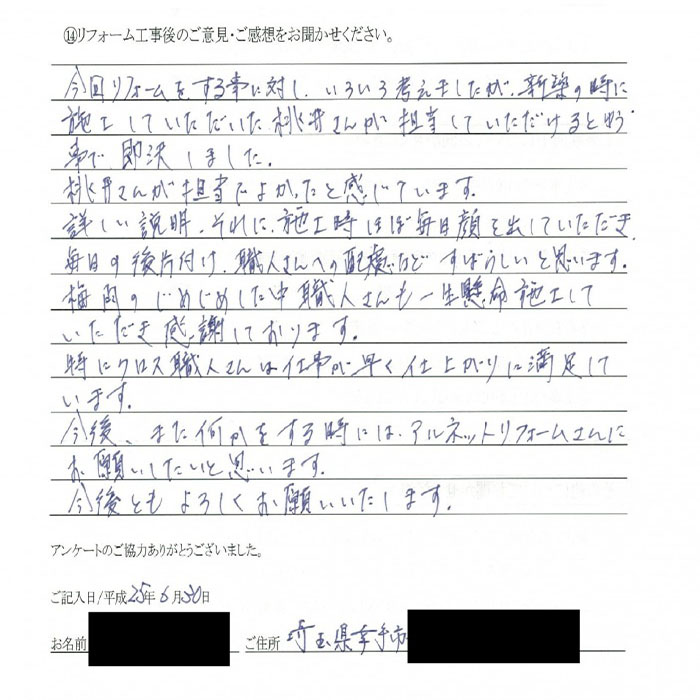 ⑭リフォーム工事後のご意見・ご感想をお聞かせください。
今回リフォームをする事に対し、いろいろ考えましたが、新築の時に
施工していただいた桃井さんが担当していただけるという
事で、即決しました。
桃井さんが担当でよかったと感じています。
詳しい説明、それに、施工時ほぼ毎日顔を出していただき、
毎日の後片付け、職人さんへの配慮など すばらしいと思います。
梅雨のじめじめした中職人さんも一生懸命施工して
いただき感謝しております。
特にクロス職人さんは仕事が早く仕上がりに満足して
います。
今後、また何かをする時には、アルネットリフォームさんに
お願いしたいと思います。
今後ともよろしくお願いいたします。
アンケートのご協力ありがとうございました。
ご記入日/平成25年6月30日
お名前 ご住所 埼玉県幸手市